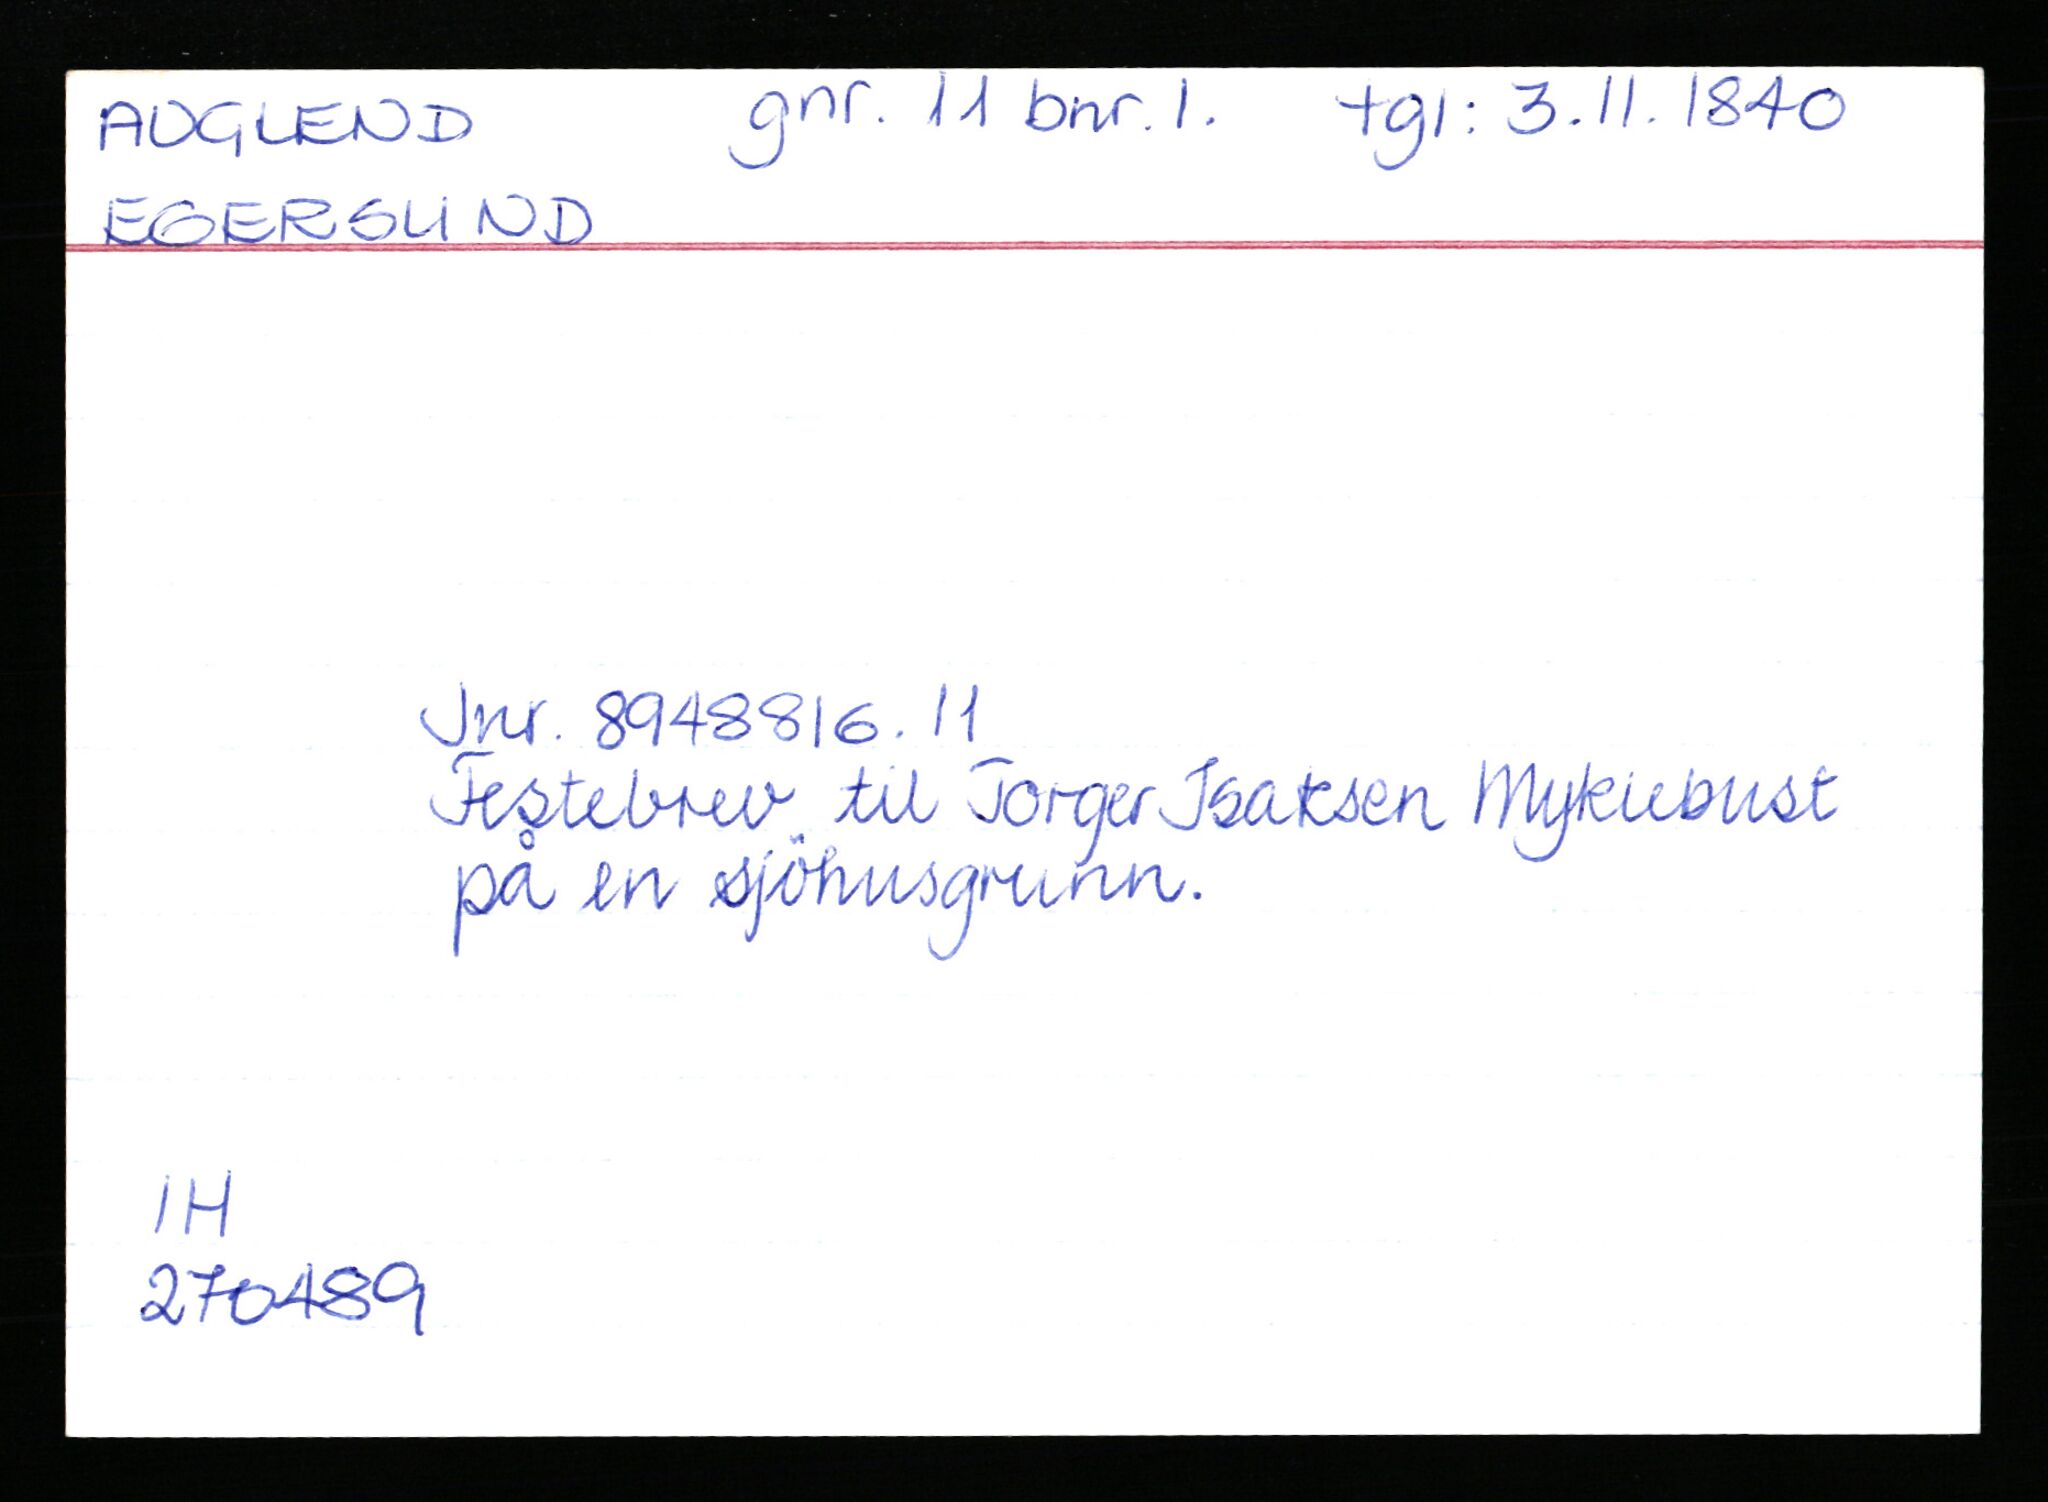 AUGLEND gnr. 11 bnr. 1. tgl: 3.11.1840
EGERSUND
Jnr. 8948816.11
Festebrev til Torger Isaksen Mykiebust
på en sjöhusgrunn.
IH
270489